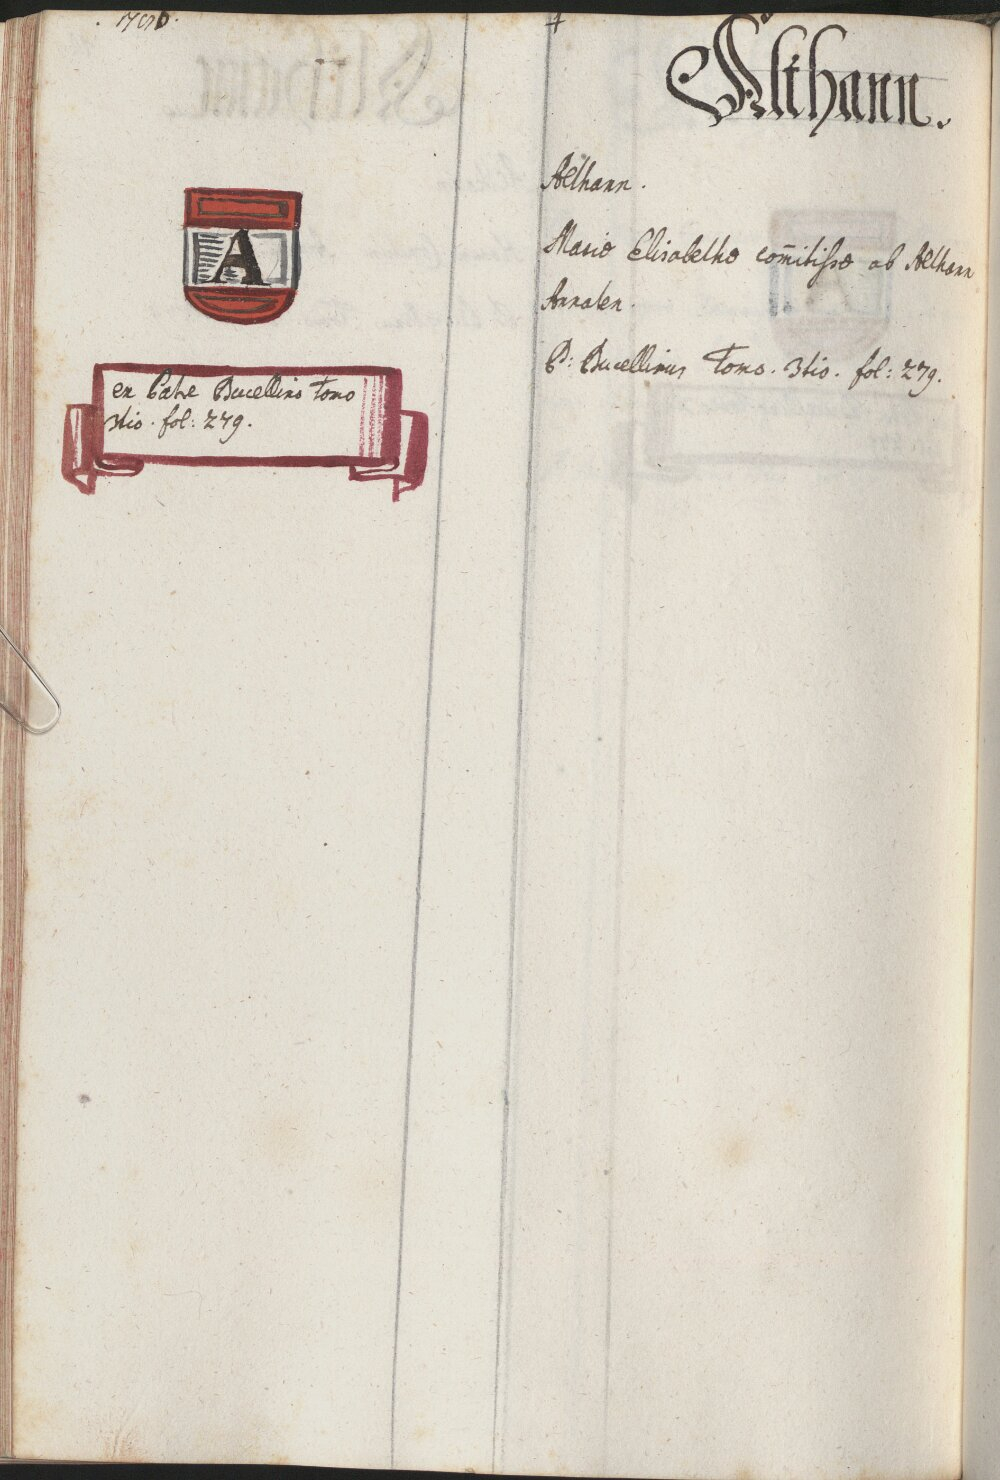 Althann.
A
ex Patre Bucellino Tomo
3tio. fol: 279.
Althann.
Mariæ Elisabethæ com̄itissæ ab Althann
Annalen.
P: Bucellinus Tomo. 3tio. fol: 279.